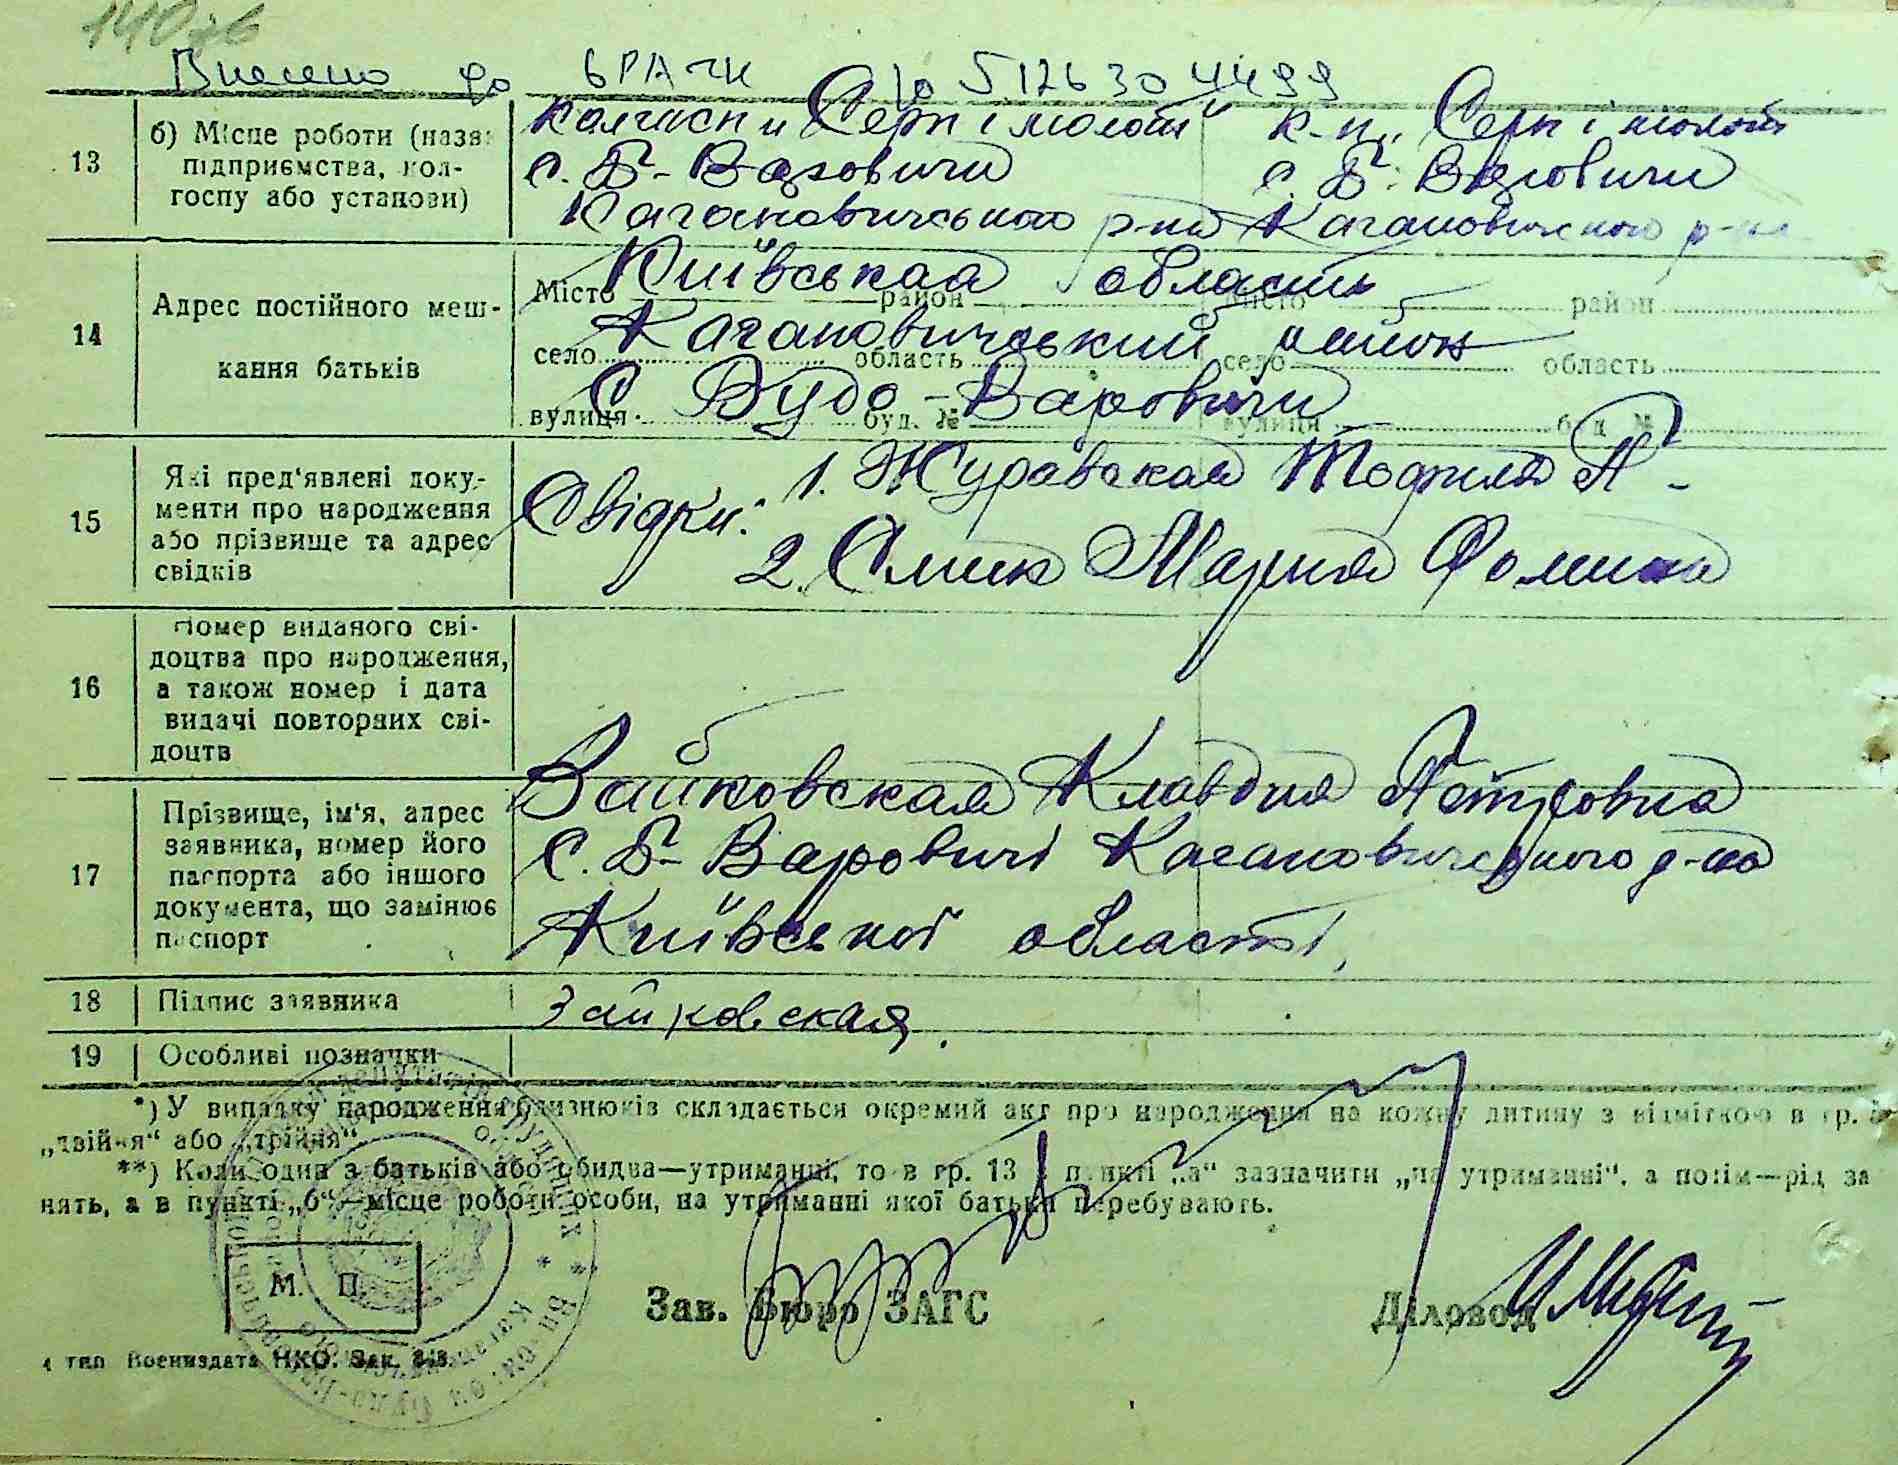 140зв
Внесено до ДРАЦС а/з 5126304499
13
б) Місце роботи (назва підприємства, колгоспу або установи)
Колгосп „Серп і молот" к-п „Серп і молот
с. Б-Варовичи с. Б-Варовичи
Кагановичського р-на Кагановичского р-на
14
Адрес постійного мешкання батьків
Місто район Місто район
Київськая область
село область село область
Кагановичський район
вулиця буд. № вулиця буд. №
с Будо-Варовичи
15
Які пред'явлені документи про народження або прізвище та адрес свідків
Свідки: 1. Журавская Теофиля П-
2. Смик Мария Фомина
16
Номер виданого свідоцтва про народження, а також номер і дата видачі повторних свідоцтв
17
Прізвище, ім'я, адрес заявника, номер його паспорта або іншого документа, що замінює паспорт
Зайковская Клавдия Петровна
с. Б-Варовичі Кагановичського р-на
Київської області,
18
Підпис заявника
Зайковская
19
Особливі позначки
*) У випадку народження близнюків складається окремий акт про народження на кожну дитину з відміткою в гр. 3
„двійня" або „трійня"
**) Коли один з батьків або обидва—утриманці, то в гр. 13 в пункті „а" зазначити „на утриманні", а потім—рід за
нять, а в пункті „б"—місце роботи особи, на утриманні якої батьки перебувають.
М. П.
Зав. Бюро ЗАГС
Діловод
4 тип Воениздата НКО. Зак.